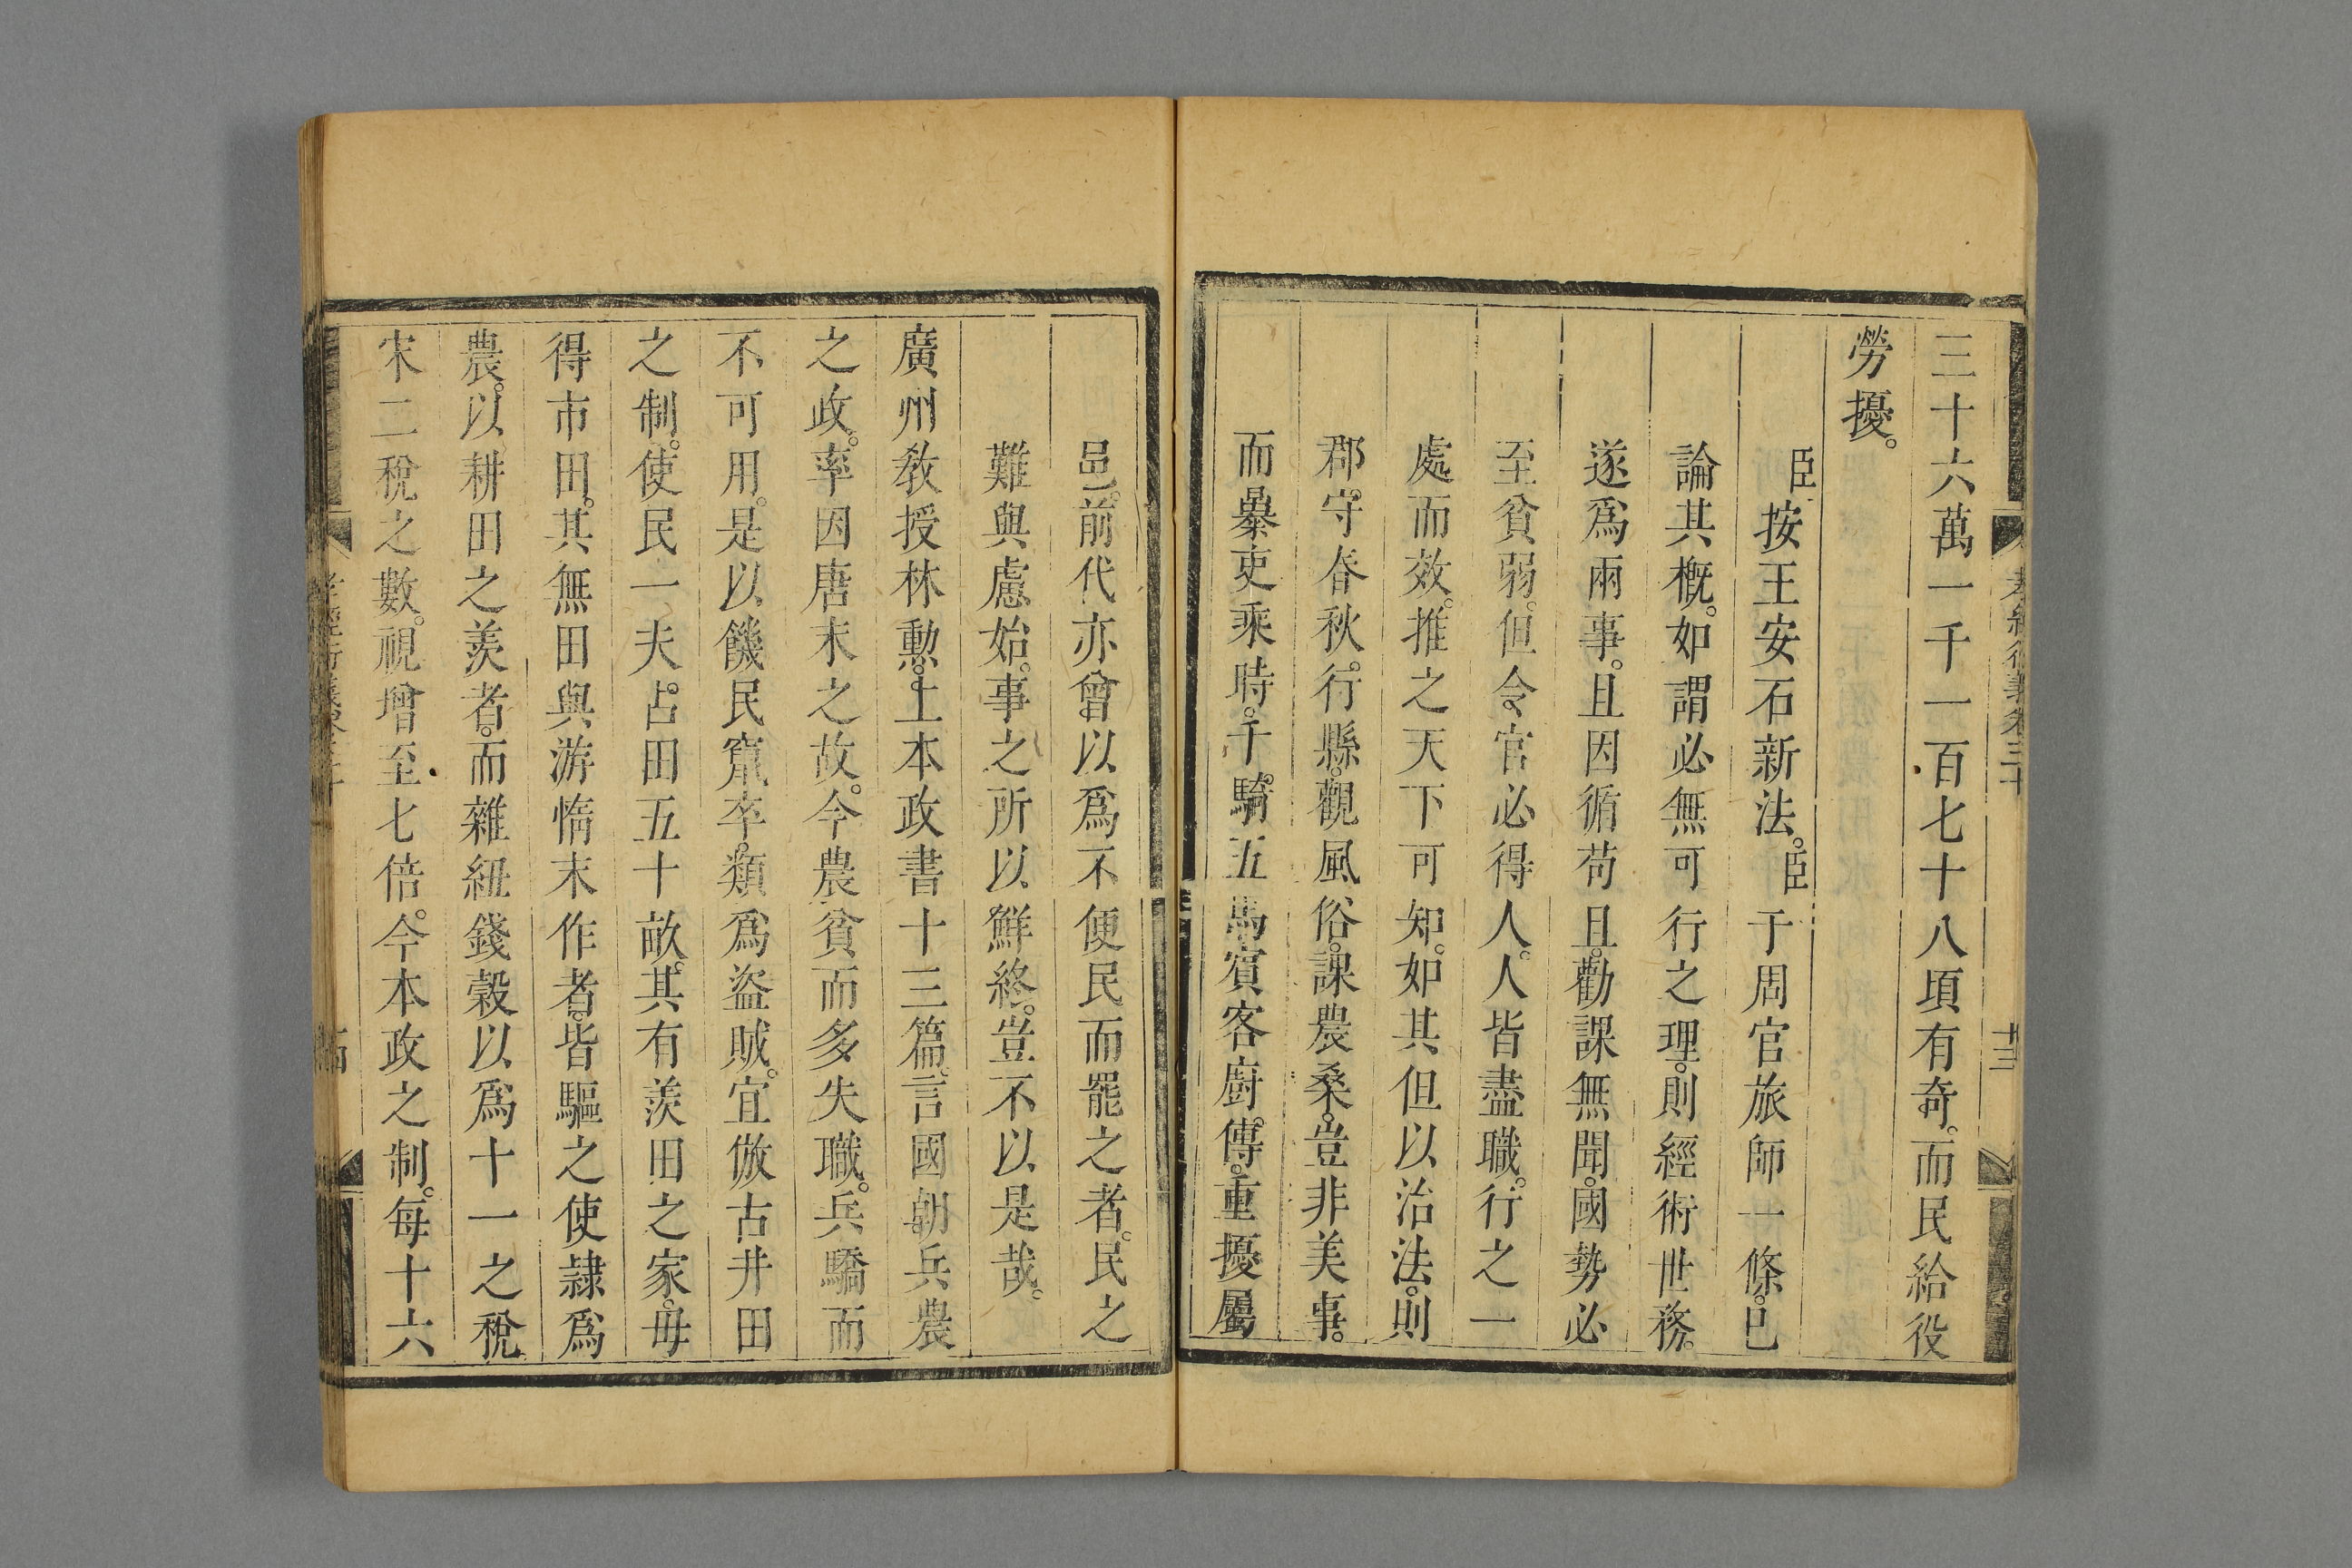 三十六萬一千一百七十八頃有奇。而民給役
勞擾。
臣按王安石新法。臣于周官旅師一條。已
論其槪。如謂必無可行之理。則經術世務。
遂爲兩事。且因循苟且。勸課無聞。國勢必
至貧弱。但令官必得人。人皆盡職。行之一
處而效。推之天下可知。如其但以治法。則
郡守春秋。行縣。觀風俗。課農桑。豈非美事。
而暴吏乘時。千騎五馬賓客廚傳。重擾屬
邑。前代亦曾以爲不便民而罷之者。民之
難與慮始。事之所以鮮終。豈不以是哉。
廣州敎授林勳。上本政書十三篇。言國朝兵農
之政。率因唐末之故。今農貧而多失職。兵驕而
不可用。是以饑民竄卒。類爲盜賊。宜倣古井田
之制。使民一夫。占田五十畝。其有羨田之家。毋
得市田。其無田與游惰末作者。皆驅之使隷爲
農。以耕田之羨者。而雜紐錢穀以爲十一之稅
宋二稅之數。視增至七倍。今本政之制。每十六
孝經衍義卷三十
十三